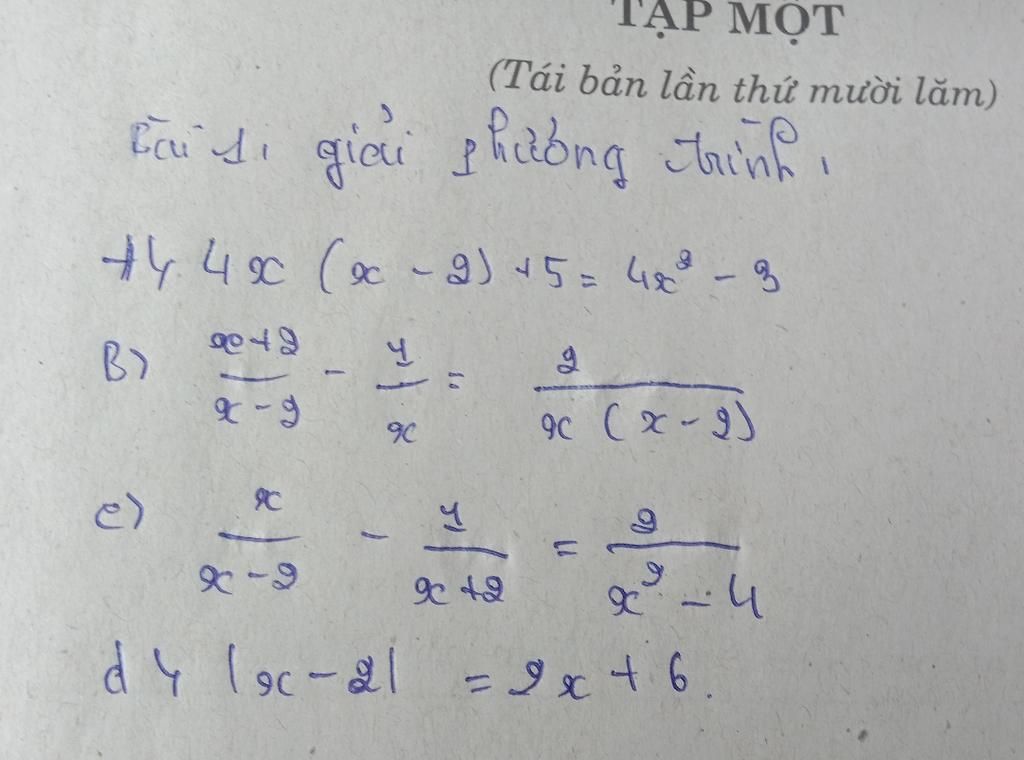 TẬP MỘT
(Tái bản lần thứ mười lăm)
Bài 1, giải phương trình,
4x (x - 2) + 5 = 4x² - 3
B) \frac{x+2}{x-2} - \frac{1}{x} = \frac{2}{x(x-2)}
c) \frac{x}{x-2} - \frac{1}{x+2} = \frac{2}{x²-4}
d) |x - 2| = 2x + 6.